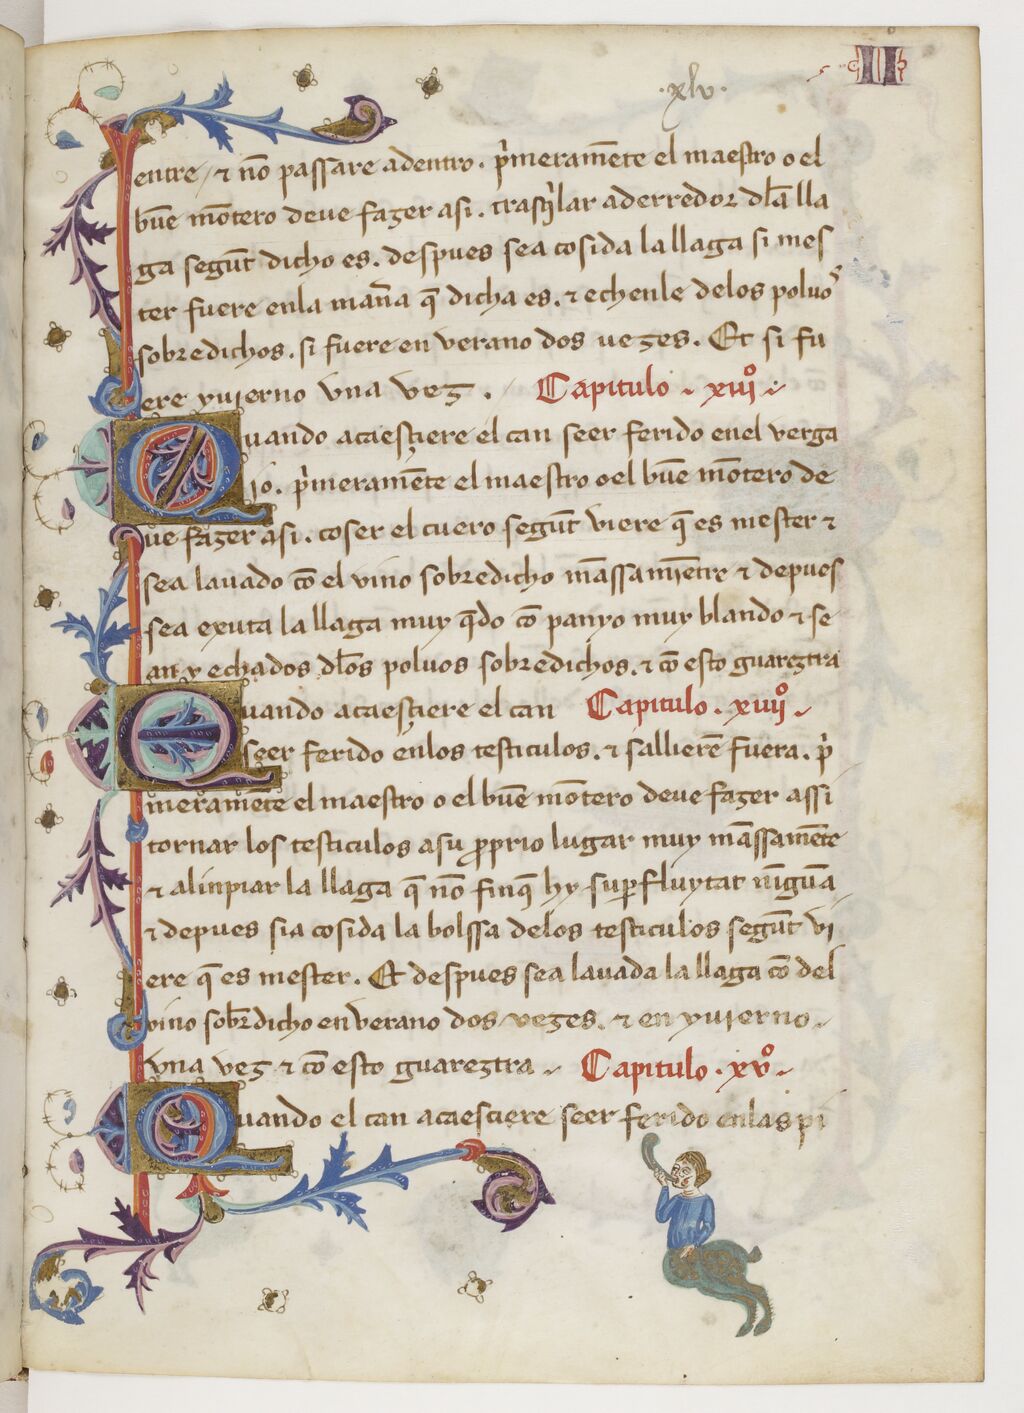 .xlv.
II
entre / ⁊ nō passare adentro. p̓meramēte el maestro o el
buē mōtero deue fazer asi. trasq̓lar aderredor dl̄a lla
ga segūt dicho es. despues sea cosida la llaga si mes
ter fuere enla man̄a q̄ dicha es. ⁊ echenle delos poluoˢ
sobredichos. si fuere en verano dos uezes. Et si fu
ere yuierno vna vez. Capitulo . xiijº.
Quando acaesçiere el can seer ferido enel verga
jo. p̓meramēte el maestro o el buē mōtero de
ue fazer asi. coser el cuero segūt viere q̄ es mester ⁊
sea lauado cō el vino sobredicho māssamiēntre ⁊ depues
sea exuta la llaga muy q̄do cō panyo muy blando ⁊ se
an y echados dl̄os poluos sobredichos. ⁊ cō esto guareztra
Quando acaesçiere el can Capitulo . xiiijº.
seer ferido enlos testiculos. ⁊ sallierē fuera. p̓
meramēte el maestro o el buē mōtero deue fazer assi
tornar los testiculos asu ꝓprio lugar muy māssamēte
⁊ alinpiar la llaga q̄ nō finq̄ hy suꝑfluytat nīgūa
⁊ depues sia cosida la bolssa delos testiculos segūt vi
ere q̄ es mester. Et despues sea lauada la llaga cō del
vino sobr̄dicho en verano dos vezes. ⁊ en yuierno.
vna vez ⁊ cō esto guareztra. Capitulo . xvº.
Quando el can acaesciere seer ferido enlas pi